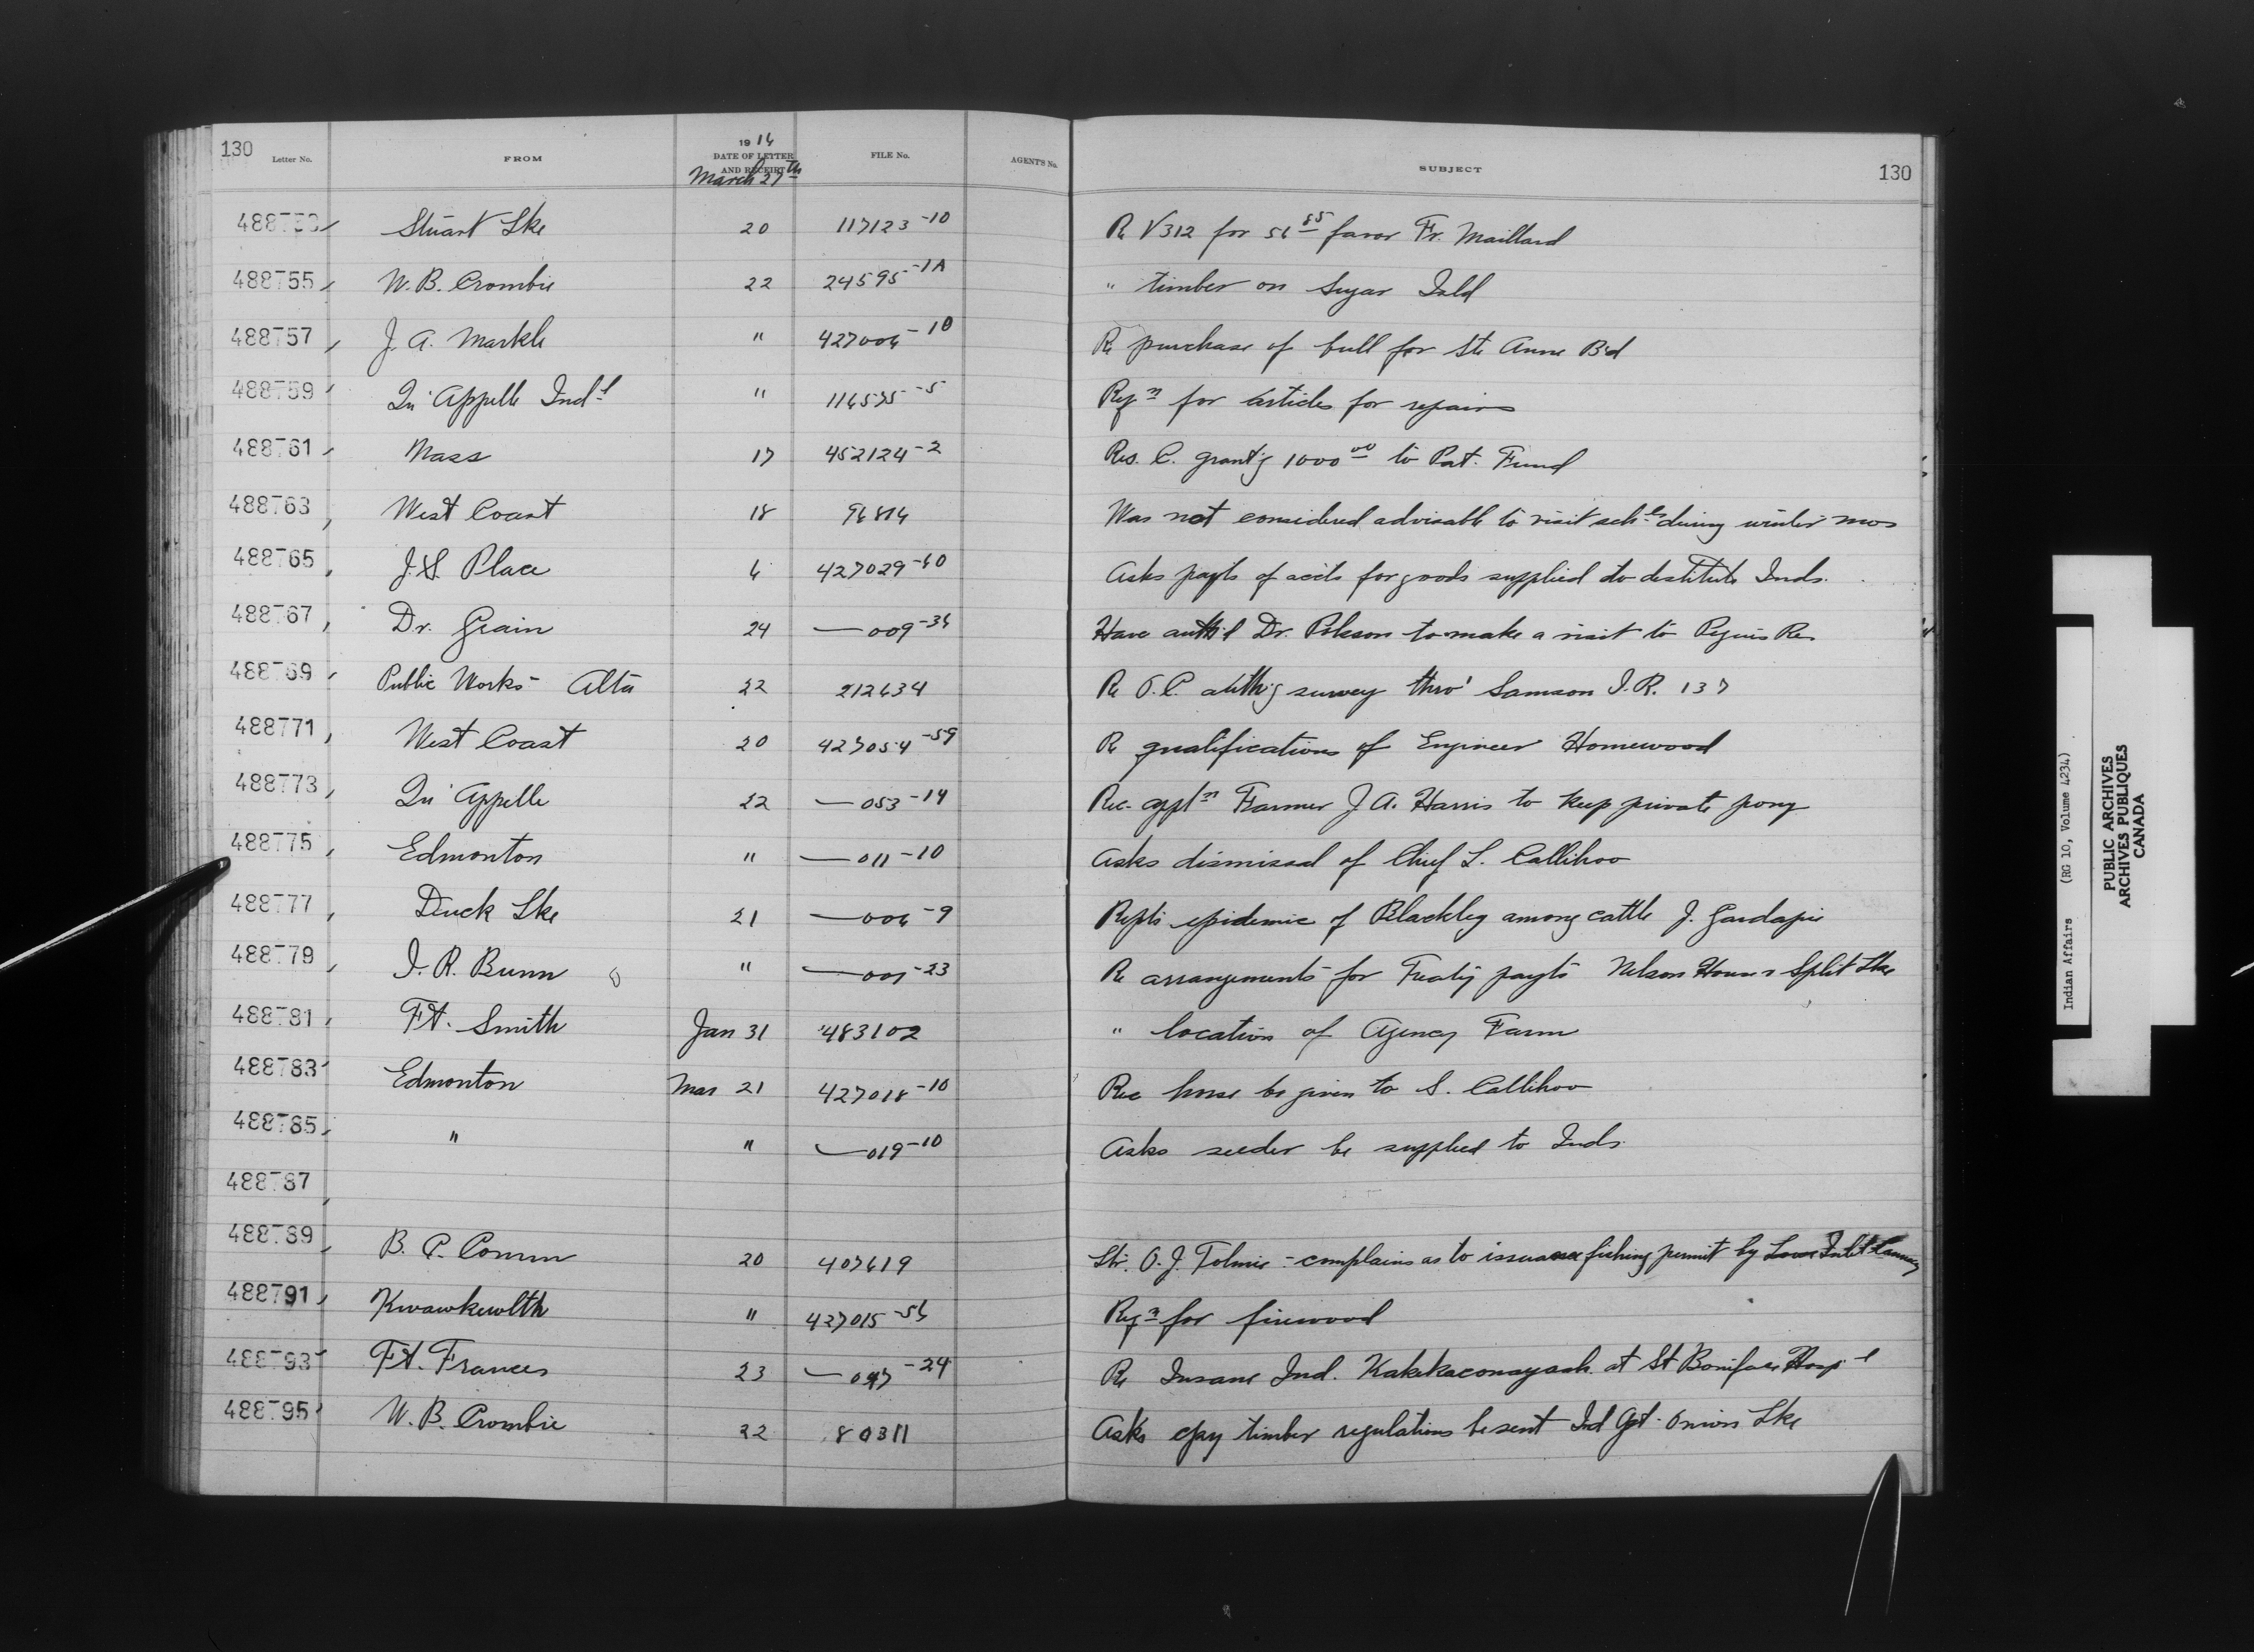 130 Letter No. FROM 1916 DATE OF LETTER AND RECEIPT March 27th FILE No. AGENT'S No. SUBJECT 130
488753 Stuart Lke 20 117123-10 Re V312 for 56 85 favor Fr. Maillard
488755 W. B. Crombie 22 24595-1A " timber on Sugar Isld
488757 J. A. Markle " 427006-10 Re purchase of bull for Ste Anne Bd
488759 Qu'Appelle Ind'l " 116575-5 Reqn for articles for repairs
488761 Mass 17 452124-2 Res. C. grant'g 1000 00 to Pat. Fund
488763 West Coast 18 96816 Was not considered advisable to visit schls during winter mos
488765 J. S. Place 6 427029-60 Asks payts of accts for goods supplied to destitute Inds.
488767 Dr. Grain 24 —009-36 Have auth'd Dr. to make a visit to Peguis Re.
488769 Public Works - Alta 22 212634 Re O.C. auth'g survey thro' Samson I.R. 137
488771 West Coast 20 427054-59 Re qualifications of Engineer Homewood
488773 Qu'Appelle 22 —053-14 Rec. appln Farmer J A. Harris to keep private pony
488775 Edmonton " —011-10 Asks dismissal of Chief L. Callihoo
488777 Duck Lke 21 —006-9 Repts epidemic of Blackleg among cattle J. Gardapie
488779 J. R. Bunn " —001-23 Re arrangements for Treaty payts Nelson House & Split Lke
488781 Ft. Smith Jan 31 483102 " location of Agency Farm
488783 Edmonton Mar 21 427018-10 Rec horse be given to S. Callihoo
488785 " " —019-10 Asks seeder be supplied to Inds
488787
488789 B. C. Comm 20 407619 Str. O. J. Tolmie - complains as to issuance fishing permit by Lowe Inlet Cannery
488791 Kwawkewlth " 427015-56 Reqn for firewood
488793 Ft. Frances 23 —047-24 Re Insane Ind. Kakekaconayash at St Boniface Hosp-l
488795 W. B. Crombie 22 80311 Asks cpy timber regulations be sent Ind Agt. Onion Lke
Indian Affairs (RG 10, Volume 4234)
PUBLIC ARCHIVES
ARCHIVES PUBLIQUES
CANADA